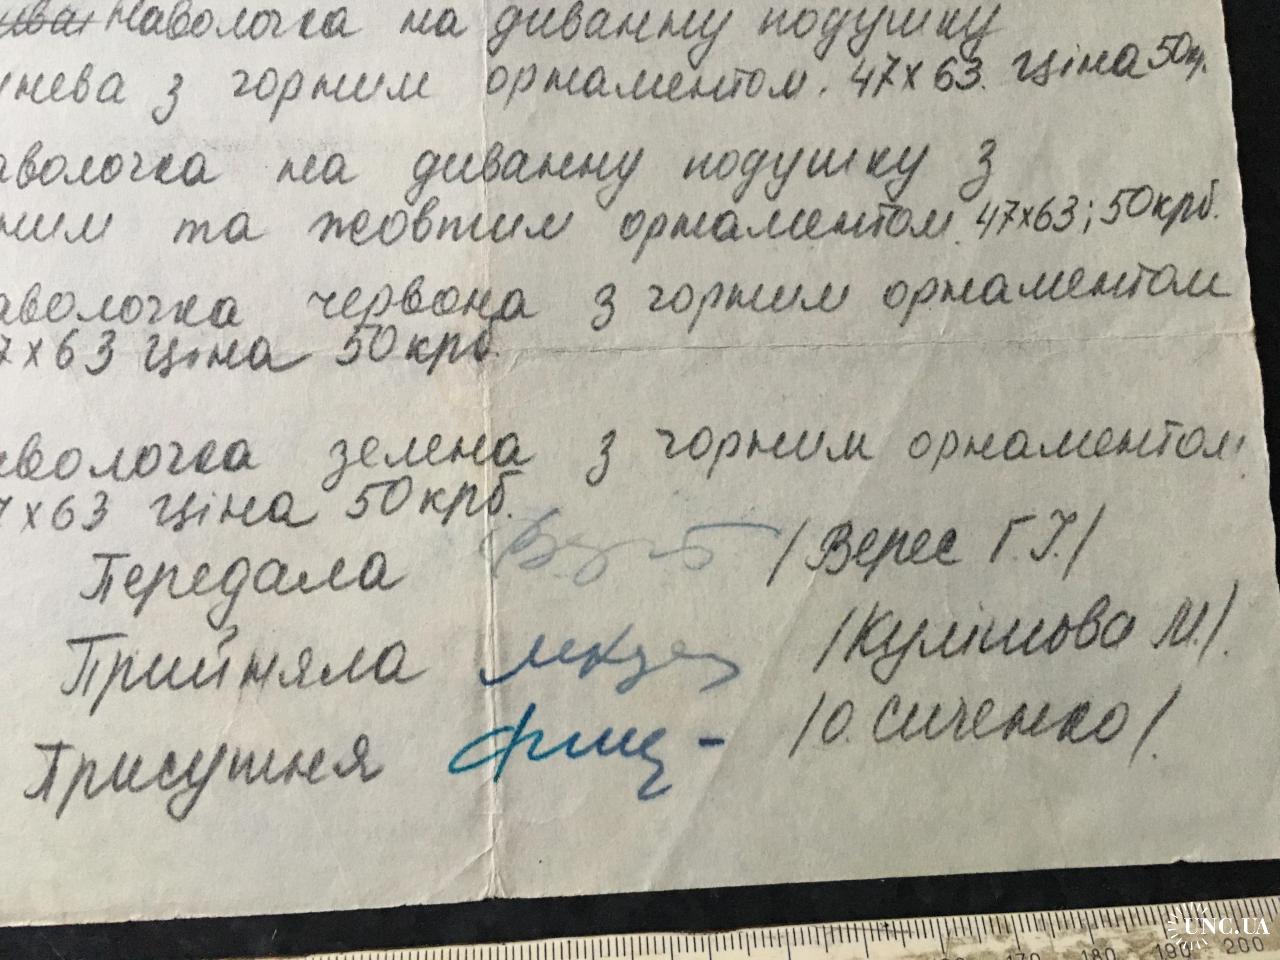 Наволочка на диванну подушку
нева з чорним орнаментом. 47х63. ціна 50кр.
аволочка на диванну подушку з
ним та жовтим орнаментом. 47х63; 50крб.
аволочка червона з чорним орнаментом
7х63 ціна 50крб.
аволочка зелена з чорним орнаментом.
7х63 ціна 50крб.
Передала /Верес Г.І./
Прийняла /Кулішова М./.
Присутня /О. Сиченко/.
170 180 190 200
UNC.UA